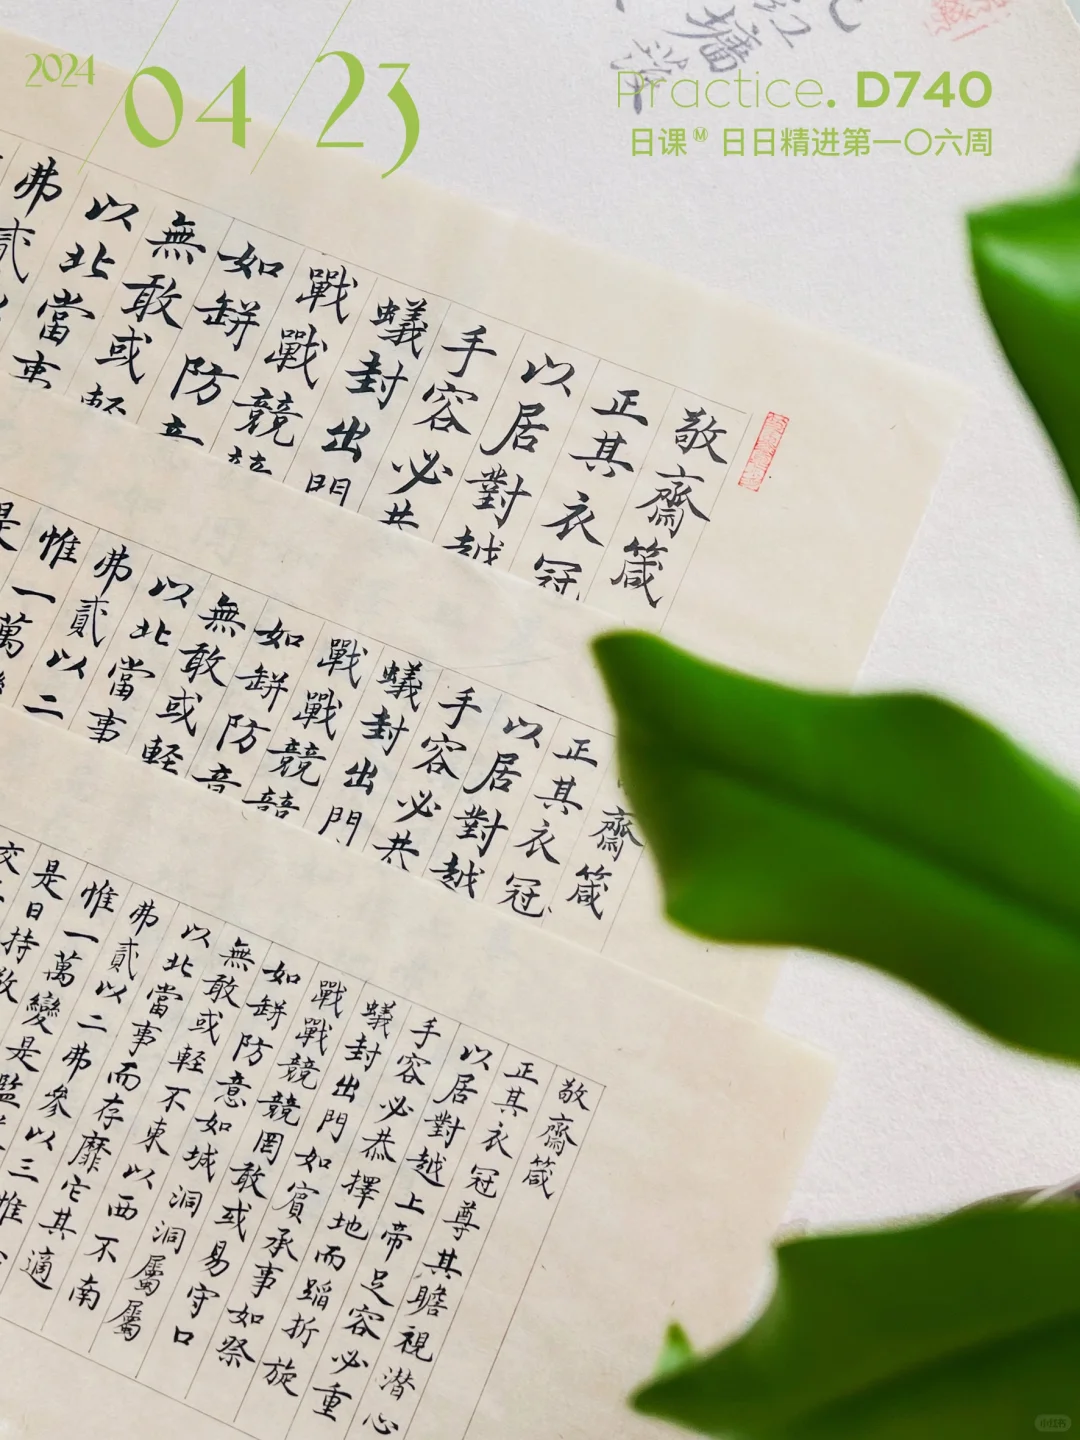 2024 04/23
Practice. D740
日课Ⓜ 日日精进第一〇六周
敬齋箴
正其衣冠
以居對越
手容必
蟻封出門
戰戰競
如缾防
無敢或
以北當
弗貳
齋箴
正其衣冠
以居對越
手容必恭
蟻封出門
戰戰競競
如缾防意
無敢或輕
以北當事
弗貳以二
惟一萬
是
敬齋箴
正其衣冠尊其瞻視潛心
以居對越上帝足容必重
手容必恭擇地而蹈折旋
蟻封出門如賓承事如祭
戰戰競競罔敢或易守口
如缾防意如城洞洞屬屬
無敢或輕不東以西不南
以北當事而存靡它其適
弗貳以二弗參以三惟
惟一萬變是監
是日持敬
交